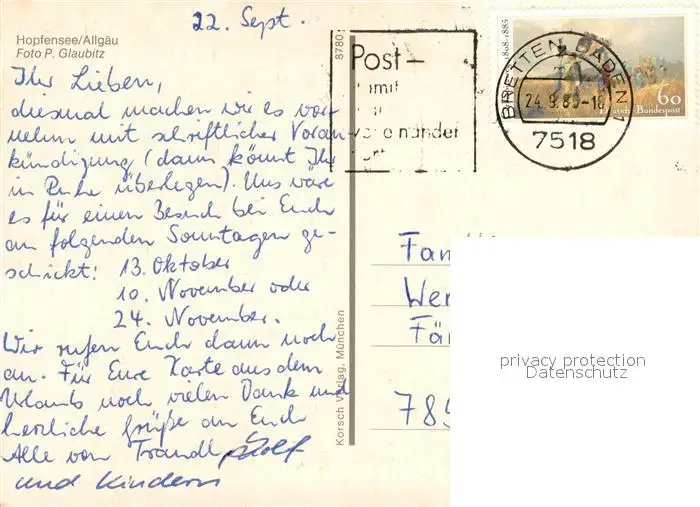 22. Sept.
Hopfensee/Allgäu
Foto P. Glaubitz
Ihr Lieben,
diesmal machen wir es vor-
nehm mit schriftlicher Voran-
kündigung (dann könnt Ihr
in Ruhe überlegen). Uns wäre
es für einen Besuch bei Euch
an folgenden Sonntagen ge-
schickt: 13. Oktober
10. November oder
24. November.
Wir rufen Euch dann noch
an. Für Eure Karte aus dem
Urlaub noch vielen Dank und
herzliche Grüße an Euch
Alle von Traudl, Rolf
und Kindern
8780
Korsch Verlag, München
Post-
BRETTEN, BADEN 1
24.9.85-18
7518
1808-1885
60
Deutsche Bundespost
Fam
Wer
Fär
789
privacy protection
Datenschutz